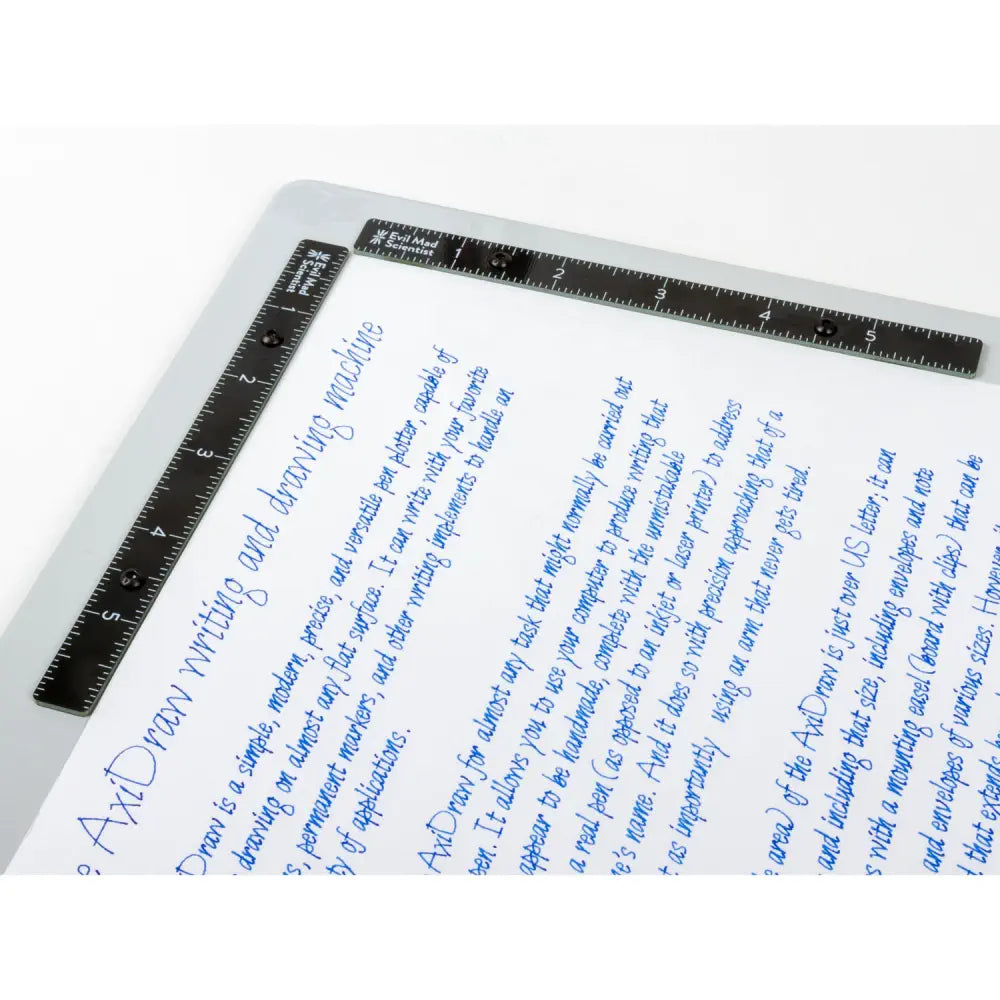 Evil Mad
Scientist
1 2 3 4 5
Evil Mad
Scientist
1 2 3 4 5
AxiDraw writing and drawing machine
Draw is a simple, modern, precise, and versatile pen plotter, capable of
drawing on almost any flat surface. It can write with your favorite
permanent markers, and other writing implements to handle an
of applications.
AxiDraw for almost any task that might normally be carried out
pen. It allows you to use your computer to produce writing that
appear to be handmade, complete with the unmistakable
a real pen (as opposed to an inkjet or laser printer) to address
name. And it does so with precision approaching that of a
as importantly using an arm that never gets tired.
area) of the AxiDraw is just over US letter; it can
and including that size, including envelopes and note
with a mounting easel (board with clips) that can be
and envelopes of various sizes. However
that extends